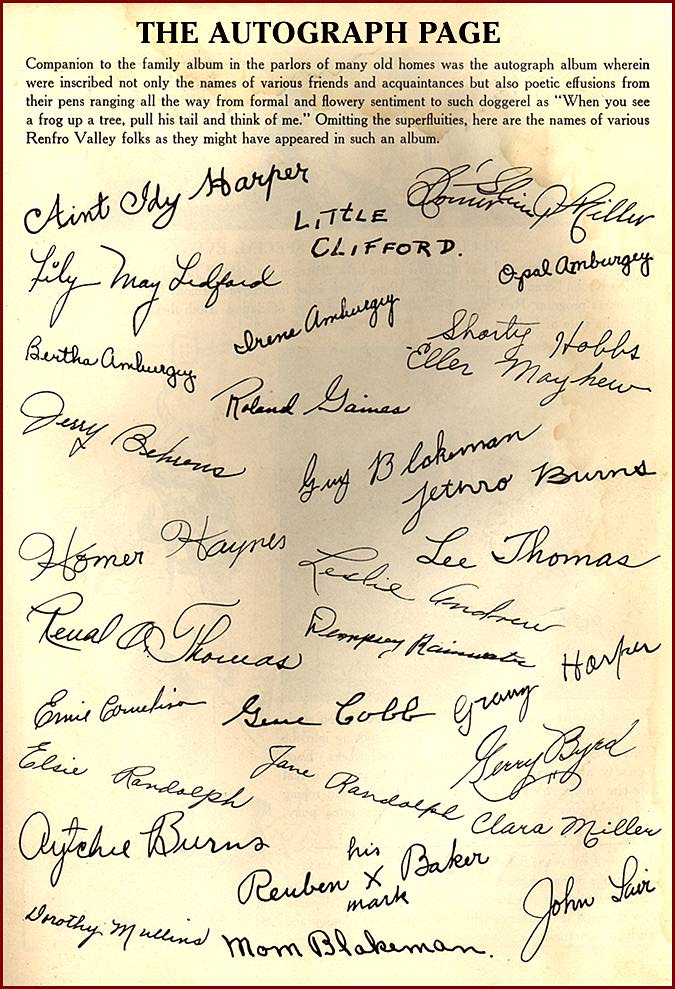 THE AUTOGRAPH PAGE
Companion to the family album in the parlors of many old homes was the autograph album wherein
were inscribed not only the names of various friends and acquaintances but also poetic effusions from
their pens ranging all the way from formal and flowery sentiment to such doggerel as "When you see
a frog up a tree, pull his tail and think of me." Omitting the superfluities, here are the names of various
Renfro Valley folks as they might have appeared in such an album.
Aint Idy Harper
"Slim" Miller
LITTLE
CLIFFORD.
Lily May Ledford
Opal Amburgey
Irene Amburgey
Bertha Amburgey
Shorty Hobbs
Eller Mayhew
Roland Gaines
Jerry Behrens
Guy Blakeman
Jethro Burns
Homer Haynes
Lee Thomas
Leslie Andrew
Reual A. Thomas
Dempsey Rainwater
Granny Harper
Ernie Cornelison
Gene Cobb
Jerry Byrd
Elsie Randolph
Jane Randolph
Clara Miller
Aytchie Burns
his
Reuben X Baker
mark
John Lair
Dorothy Mullins
Mom Blakeman.